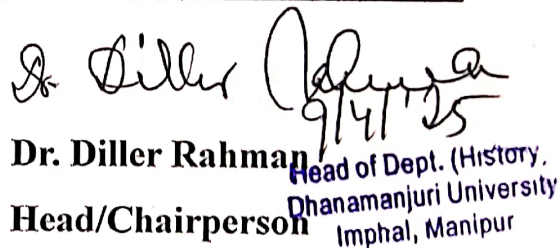 Dr Diller Rahman
9/4/'25
Dr. Diller Rahman
Head/Chairperson
Head of Dept. (History,
Dhanamanjuri University
Imphal, Manipur